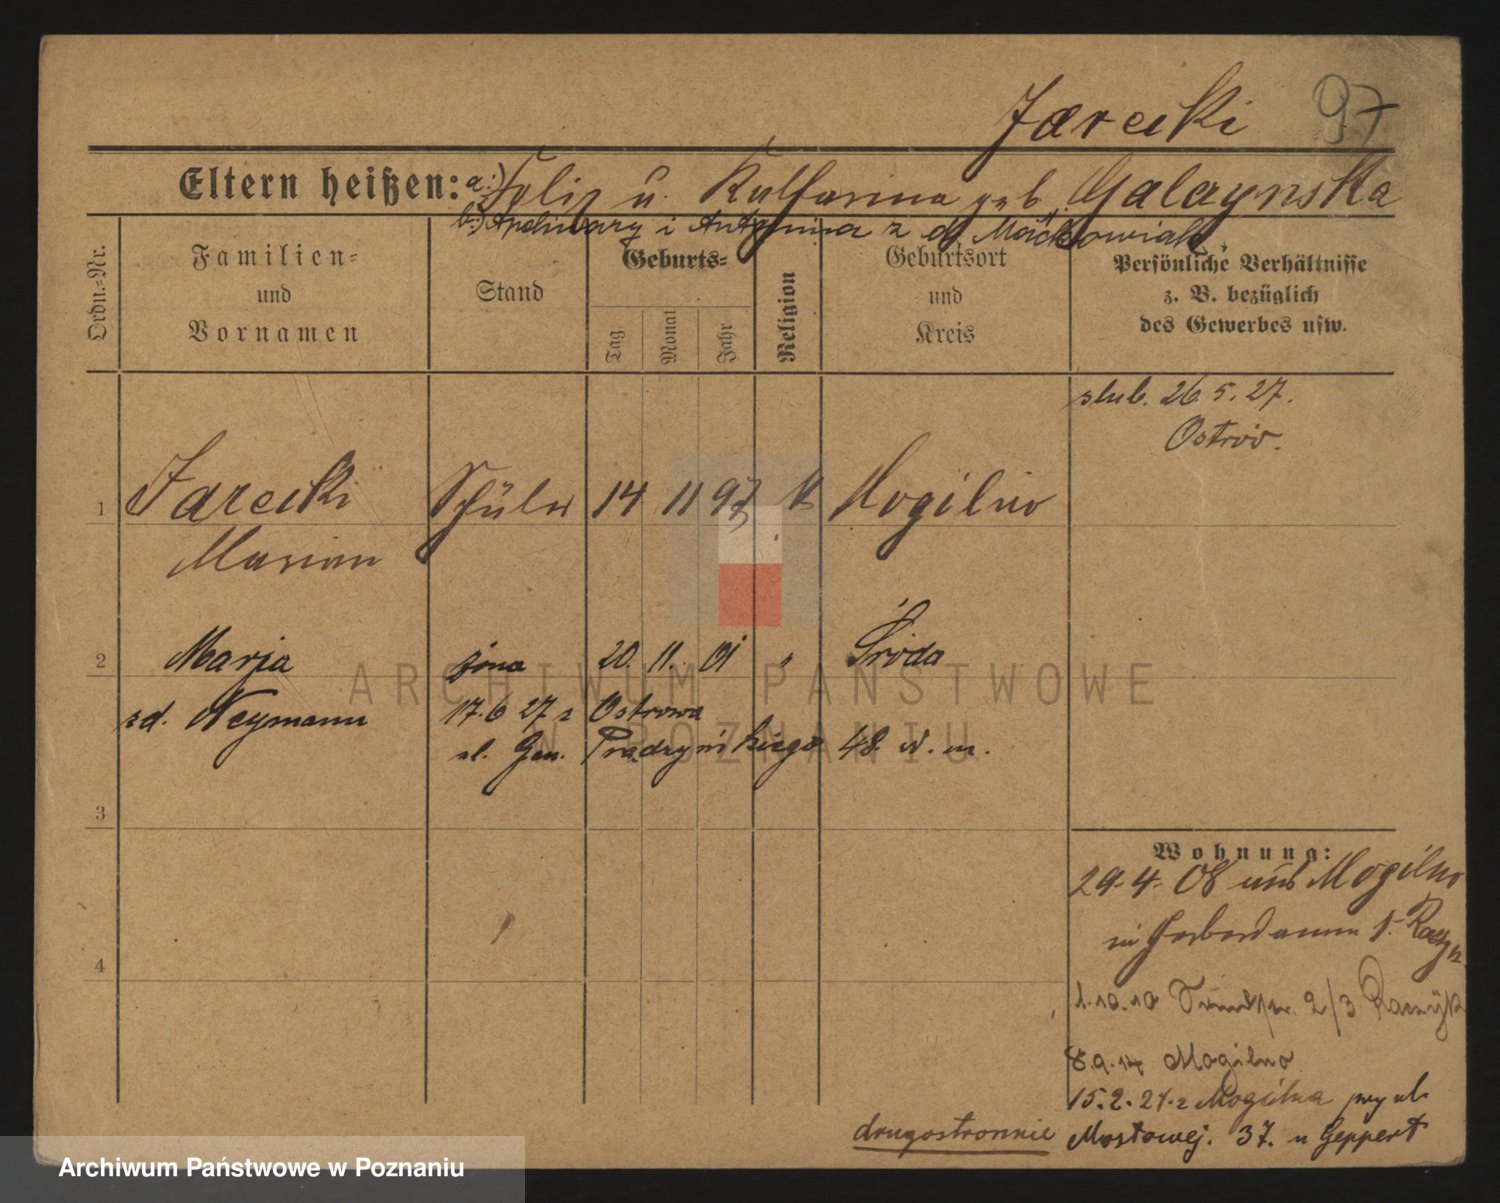 Jarecki 97
Eltern heißen: a.) Felix u. Katharina geb. Galczynska
b.) i Antonina z d. Maćkowiak
Ordn.-Nr.
Familien-
und
Vornamen
Stand
Geburts-
Tag
Monat
Jahr
Religion
Geburtsort
und
Kreis
Persönliche Verhältnisse
z. B. bezüglich
des Gewerbes usw.
ślub. 26.5.27.
Ostrów.
1 Jarecki Schüler 14 11 97 k Mogilno
Marian
2 Marja żona 20. 11. 01 " Środa
zd. Neymann 17.6 27 z Ostrowa
ul. Gen. Prądzyńskiego 48. w. m.
3
4
Wohnung:
29.4.08 aus Mogilno
in Gerberdamm 1.
1.10.10 2/3
8.9.14 Mogilno
15.2.21 z Mogilna przy ul.
drugostronnie Mostowej. 37. u Geppert
ARCHIWUM PAŃSTWOWE
W POZNANIU
Archiwum Państwowe w Poznaniu